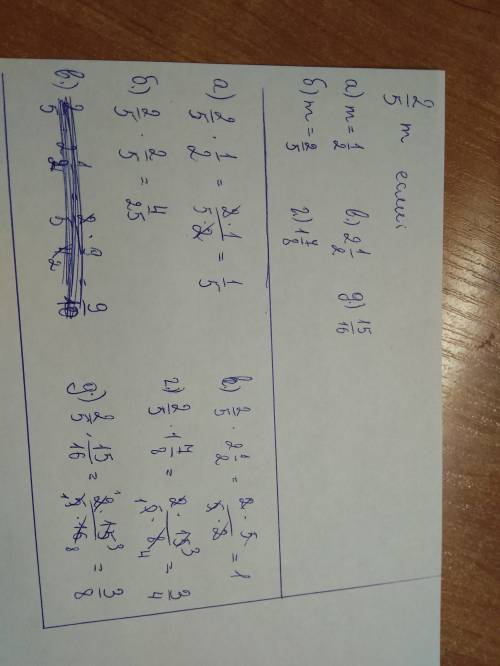 2/5 m если
а) m = 1/2 в) 2 1/2 д) 15/16
б) m = 2/5 г) 1 7/8
а) 2/5 · 1/2 = 2·1/5·2 = 1/5
б) 2/5 · 2/5 = 4/25
в)
в) 2/5 · 2 1/2 = 2·5/5·2 = 1
г) 2/5 · 1 7/8 = 2·15 3/1 5·8 4 = 3/4
д) 2/5 · 15/16 = 1 2·15 3/1 5·16 8 = 3/8